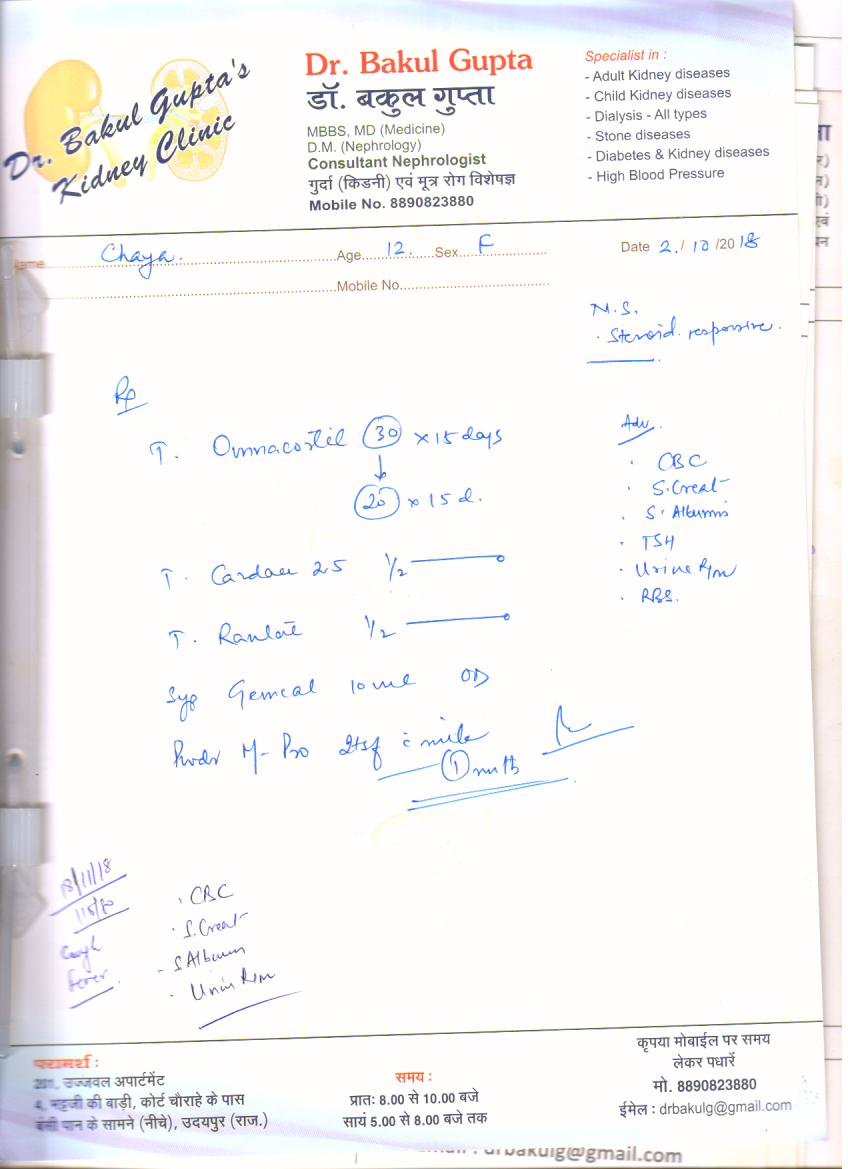 Dr. Bakul Gupta's
Kidney Clinic
Dr. Bakul Gupta
डॉ. बकुल गुप्ता
MBBS, MD (Medicine)
D.M. (Nephrology)
Consultant Nephrologist
गुर्दा (किडनी) एवं मूत्र रोग विशेषज्ञ
Mobile No. 8890823880
Specialist in :
- Adult Kidney diseases
- Child Kidney diseases
- Dialysis - All types
- Stone diseases
- Diabetes & Kidney diseases
- High Blood Pressure
Name Chaya. Age 12. Sex F Date 2/10/2018
Mobile No.
N.S.
. Steroid responsive.
Rp
T. Omnacortil 30 x 15 days
20 x 15 d.
T. Cardace 2.5 1/2
T. 1/2
Syp Gemcal 10 ml OD
M-Pro 2tsf c milk
1 mnth
Adv.
. CBC
. S. Creat
. S. Albumin
. TSH
. Urine R/m
. RBS.
/11/18
Cough
Fever.
. CBC
. S. Creat
- S Albumin
. Urine R/m
परामर्श :
201, उज्जवल अपार्टमेंट
4, भट्टजी की बाड़ी, कोर्ट चौराहे के पास
बंसी पान के सामने (नीचे), उदयपुर (राज.)
समय :
प्रातः 8.00 से 10.00 बजे
सायं 5.00 से 8.00 बजे तक
कृपया मोबाईल पर समय
लेकर पधारें
मो. 8890823880
ईमेल : drbakulg@gmail.com
: drbakulg@gmail.com